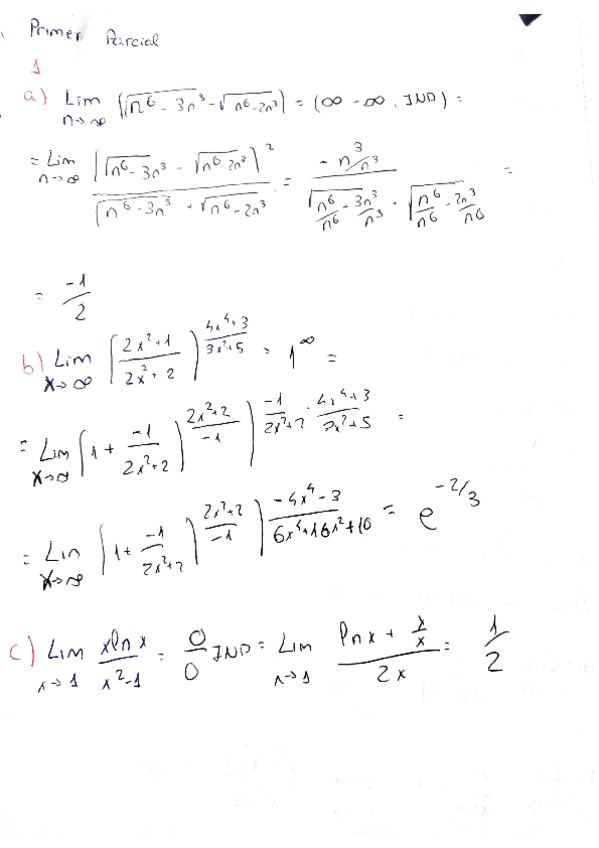 Primer Parcial
1
a) Lim n→∞ (√(n⁶ - 3n³) - √(n⁶ - 2n³)) = (∞ - ∞, IND) =
= Lim n→∞ (√(n⁶ - 3n³) - √(n⁶ - 2n³))² / (√(n⁶ - 3n³) + √(n⁶ - 2n³)) = (-n³/n³) / (√(n⁶/n⁶ - 3n³/n³) + √(n⁶/n⁶ - 2n³/n6)) =
= -1/2
b) Lim x→∞ ((2x²+1)/(2x²+2))^((4x⁴+3)/(3x²+5)) = 1^∞ =
= Lim x→∞ ((1 + -1/(2x²+2))^((2x²+2)/-1))^(-1/(2x²+2) · (4x⁴+3)/(3x²+5)) =
= Lim x→∞ ((1 + -1/(2x²+2))^((2x²+2)/-1))^((-4x⁴-3)/(6x⁴+16x²+10)) = e^(-2/3)
c) Lim x→1 (x ln x)/(x²-1) = 0/0 IND = Lim x→1 (ln x + x/x)/(2x) = 1/2